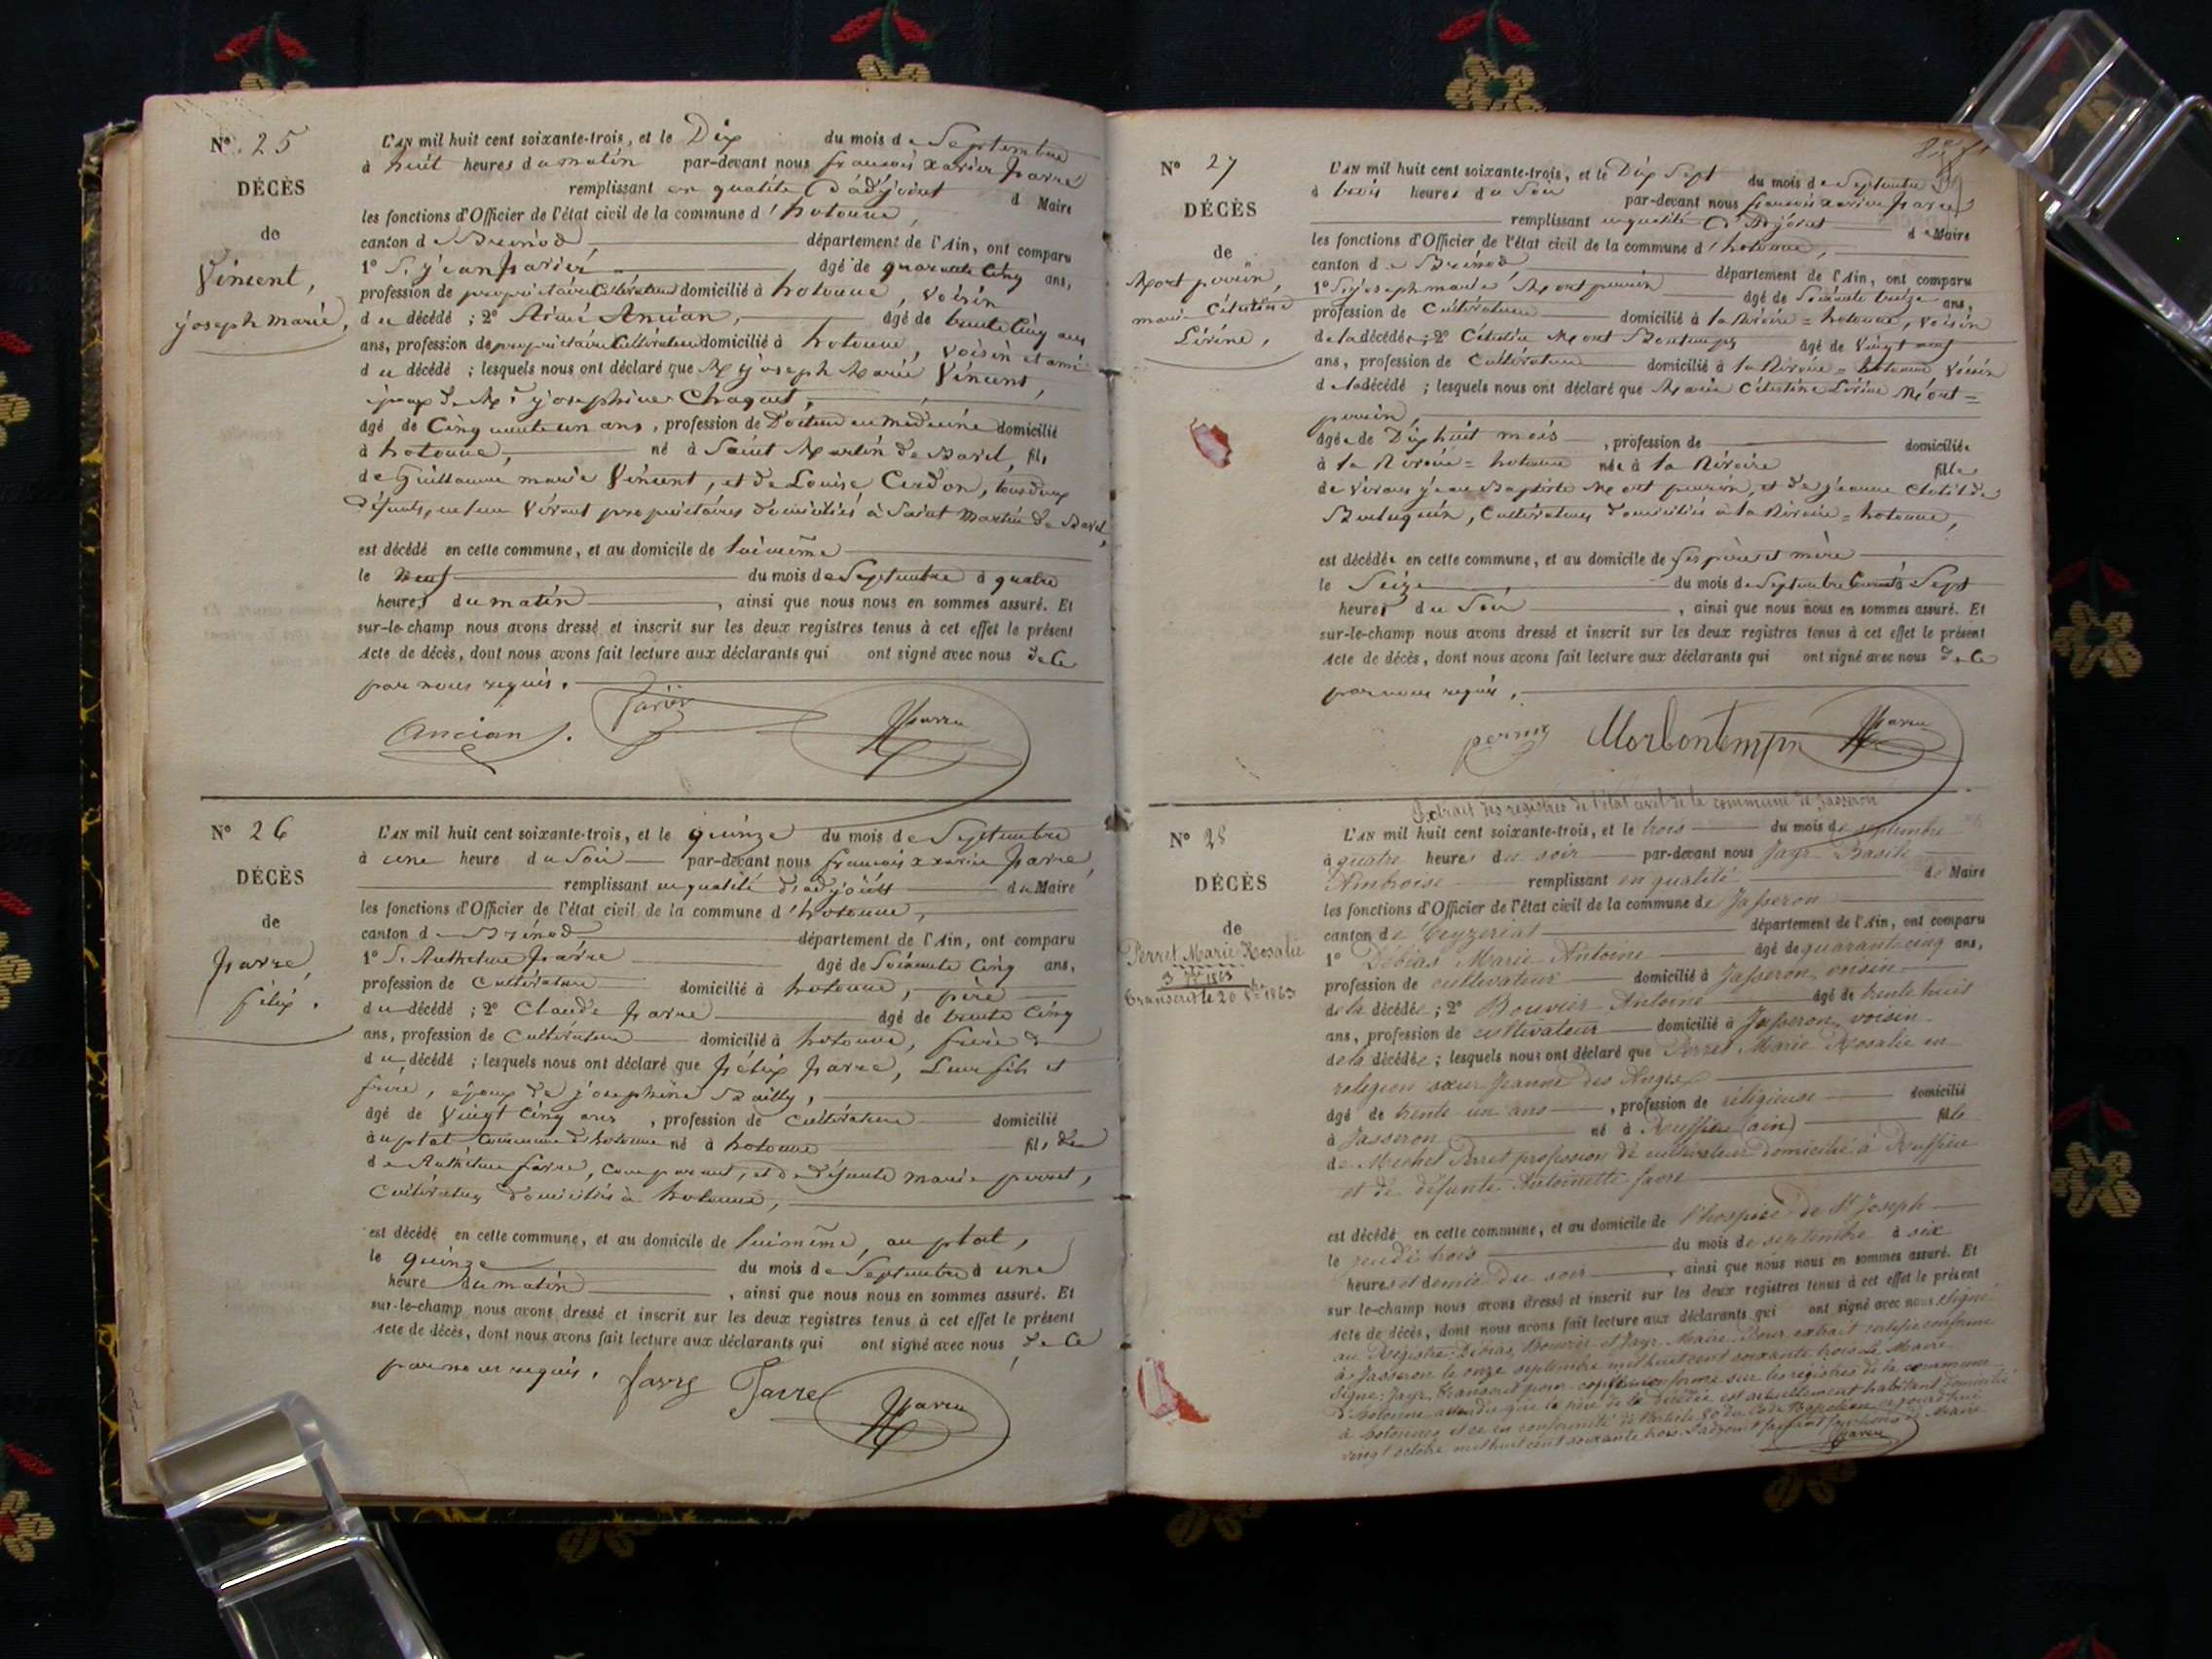 N° 25
DÉCÈS
de
Vincent,
joseph marie,
L'AN mil huit cent soixante-trois, et le Dix du mois de Septembre
à huit heures du matin par-devant nous françois xavier favre
remplissant en qualité d'adjoint d Maire
les fonctions d'Officier de l'état civil de la commune d'hotonne,
canton de Brénod département de l'Ain, ont comparu
1° S. jean âgé de quarante cinq ans,
profession de propriétaire Cultivateur domicilié à hotonne, voisin
du décédé ; 2° Aimé Ancian, âgé de trente cinq ans
ans, profession de propriétaire Cultivateur domicilié à hotonne, voisin et ami
du décédé ; lesquels nous ont déclaré que M. joseph Marie Vincent,
époux de josephine Chaquet,
âgé de Cinquante un ans, profession de Docteur en médecine domicilié
à hotonne, né à Saint Martin de Bavel, fils
de Guillaume marie Vincent, et de Louise Cerdon, tous deux
défunts, en leur vivant propriétaires domiciliés à Saint Martin de Bavel,
est décédé en cette commune, et au domicile de lui même
le neuf du mois de Septembre à quatre
heures du matin, ainsi que nous nous en sommes assuré. Et
sur-le-champ nous avons dressé et inscrit sur les deux registres tenus à cet effet le présent
acte de décès, dont nous avons fait lecture aux déclarants qui ont signé avec nous de ce
par nous requis.
Ancian favre
N° 26
DÉCÈS
de
favre,
félix.
L'AN mil huit cent soixante-trois, et le quinze du mois de Septembre
à une heure du Soir par-devant nous françois xavier favre,
remplissant en qualité d'adjoint du Maire
les fonctions d'Officier de l'état civil de la commune d'hotonne,
canton de Brénod département de l'Ain, ont comparu
1° S. Anthelme favre âgé de Soixante Cinq ans,
profession de Cultivateur domicilié à hotonne, père
du décédé ; 2° Claude favre âgé de trente Cinq
ans, profession de Cultivateur domicilié à hotonne, frère
du décédé ; lesquels nous ont déclaré que félix favre, Leur fils et
frère, époux de josephine Bailly,
âgé de Vingt Cinq ans, profession de Cultivateur domicilié
au ptat Commune d'hotonne né à hotonne fils de
de Anthelme favre, Comparant, et de défunte marie perret,
Cultivateurs domiciliés à hotonne,
est décédé en cette commune, et au domicile de lui même, au ptat,
le quinze du mois de Septembre à une
heure du matin, ainsi que nous nous en sommes assuré. Et
sur-le-champ nous avons dressé et inscrit sur les deux registres tenus à cet effet le présent
acte de décès, dont nous avons fait lecture aux déclarants qui ont signé avec nous de ce
par nous requis. favre favre favre
N° 27
DÉCÈS
de
Mort perrin,
marie Célestine
L'AN mil huit cent soixante-trois, et le Dix Sept du mois de Septembre
à trois heures du Soir par-devant nous françois xavier favre
remplissant en qualité d'Adjoint de Maire
les fonctions d'Officier de l'état civil de la commune d'hotonne,
canton de Brénod, département de l'Ain, ont comparu
1° S. joseph marie Mort perrin âgé de Soixante treize ans,
profession de Cultivateur domicilié à la Rivoire = hotonne, voisin
de la décédée ; 2° Célestin Mort Bontemps âgé de Vingt neuf
ans, profession de Cultivateur domicilié à la Rivoire = hotonne voisin
de la décédé ; lesquels nous ont déclaré que Marie Célestine Mort =
perrin,
âgée de Dix huit mois, profession de domiciliée
à la Rivoire = hotonne née à la Rivoire fille
de vivans jean Baptiste Mort perrin, et de jeanne Clotilde
Cultivateurs domiciliés à la Rivoire = hotonne,
est décédée en cette commune, et au domicile de ses père et mère
le Seize du mois de Septembre Courant à Sept
heures du Soir, ainsi que nous nous en sommes assuré. Et
sur-le-champ nous avons dressé et inscrit sur les deux registres tenus à cet effet le présent
acte de décès, dont nous avons fait lecture aux déclarants qui ont signé avec nous de ce
par nous requis.
Morbontemps favre
Extrait des registres de l'état civil de la commune de Jasseron
N° 28
DÉCÈS
de
Perret Marie Rosalie
3 7bre 1863
transcrit le 20 8bre 1863
L'AN mil huit cent soixante-trois, et le trois du mois de septembre
à quatre heures du soir par-devant nous Jayr Basile
Ambroise remplissant en qualité de Maire
les fonctions d'Officier de l'état civil de la commune de Jasseron
canton de Ceyzeriat département de l'Ain, ont comparu
1° Débias Marie Antoine âgé de quarante cinq ans,
profession de cultivateur domicilié à Jasseron, voisin
de la décédée ; 2° Bouvier Antoine âgé de trente huit
ans, profession de cultivateur domicilié à Jasseron, voisin
de la décédée ; lesquels nous ont déclaré que Perret Marie Rosalie en
religion sœur Jeanne des Anges
âgé de trente un ans, profession de réligieuse domicilié
à Jasseron né à Ruffieu (ain) fille
de Michel Perret profession de cultivateur domicilié à Ruffieu
et de défunte Antoinette favre
est décédé en cette commune, et au domicile de l'hospice de St Joseph
le jeudi trois du mois de septembre à six
heures et demie du soir, ainsi que nous nous en sommes assuré. Et
sur le-champ nous avons dressé et inscrit sur les deux registres tenus à cet effet le présent
acte de décès, dont nous avons fait lecture aux déclarants qui ont signé avec nous. Signé
au Registre: Débias, Bouvier et Jayr Maire. Pour extrait certifié conforme
à Jasseron le onze septembre mil huit cent soixante trois. Le Maire
signé: Jayr, transcrit pour copie conforme sur les registres de la commune
d'hotonne attendu que le père de la décédée est actuellement habitant domicilié
à hotonnes et ce en conformité de l'article 80 du Code Napoléon aujourd'hui
vingt octobre mil huit cent soixante trois. L'adjoint faisant fonctions de Maire
favre